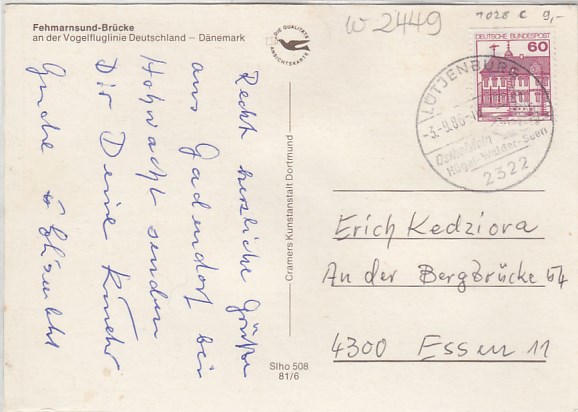 Fehmarnsund-Brücke
an der Vogelfluglinie Deutschland – Dänemark
DIE QUALITÄTS
ANSICHTSKARTE
W 2449
1028 C 9,-
DEUTSCHE BUNDESPOST
60
LÜTJENBURG
-3.-9.86-
Ostholstein
Hügel-Wälder-Seen
2322
Recht herzliche Grüße
aus Gadendorf bei
Hohwacht senden
Dir Deine
Cramers Kunstanstalt Dortmund
Slho 508
81/6
Erich Kedziora
An der Bergbrücke 54
4300 Essen 11